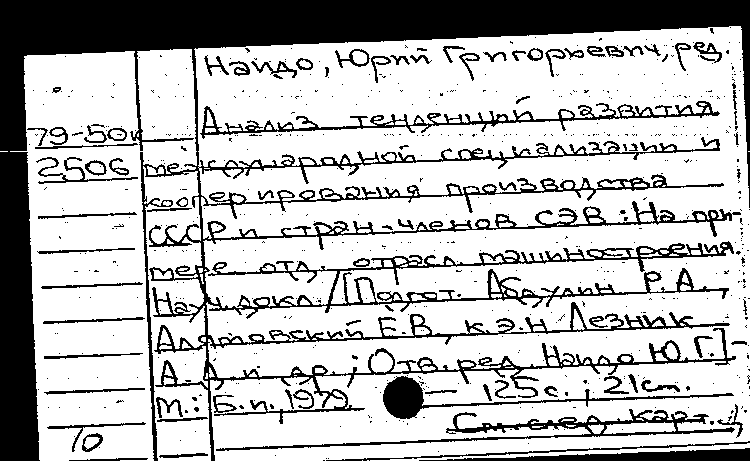 Найдо, Юрий Григорьевич, ред.
Анализ тенденций развития
79-50к
2506 международной специализации и
кооперирования производства
СССР и стран-членов СЭВ: На при-
мере отд. отрасл. машиностроения.
Науч. докл. / [Подгот. Абдулин Р. А.,
Алятовский Е.В., к.э.н Лезник
А. Д. и др.; Отв. ред. Найдо Ю.Г.] -
М.: Б.и., 1979 — 125 с.; 21 см.
См. след. карт.
10